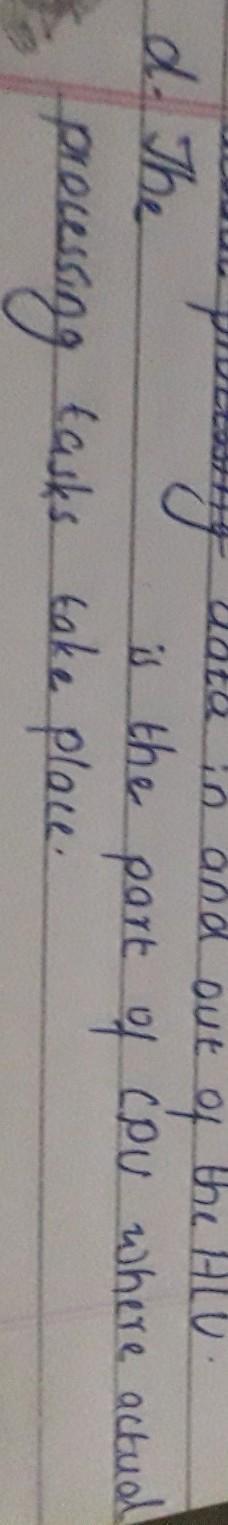 data in and out of the ALU.
d. The is the part of CPU where actual
processing tasks take place.